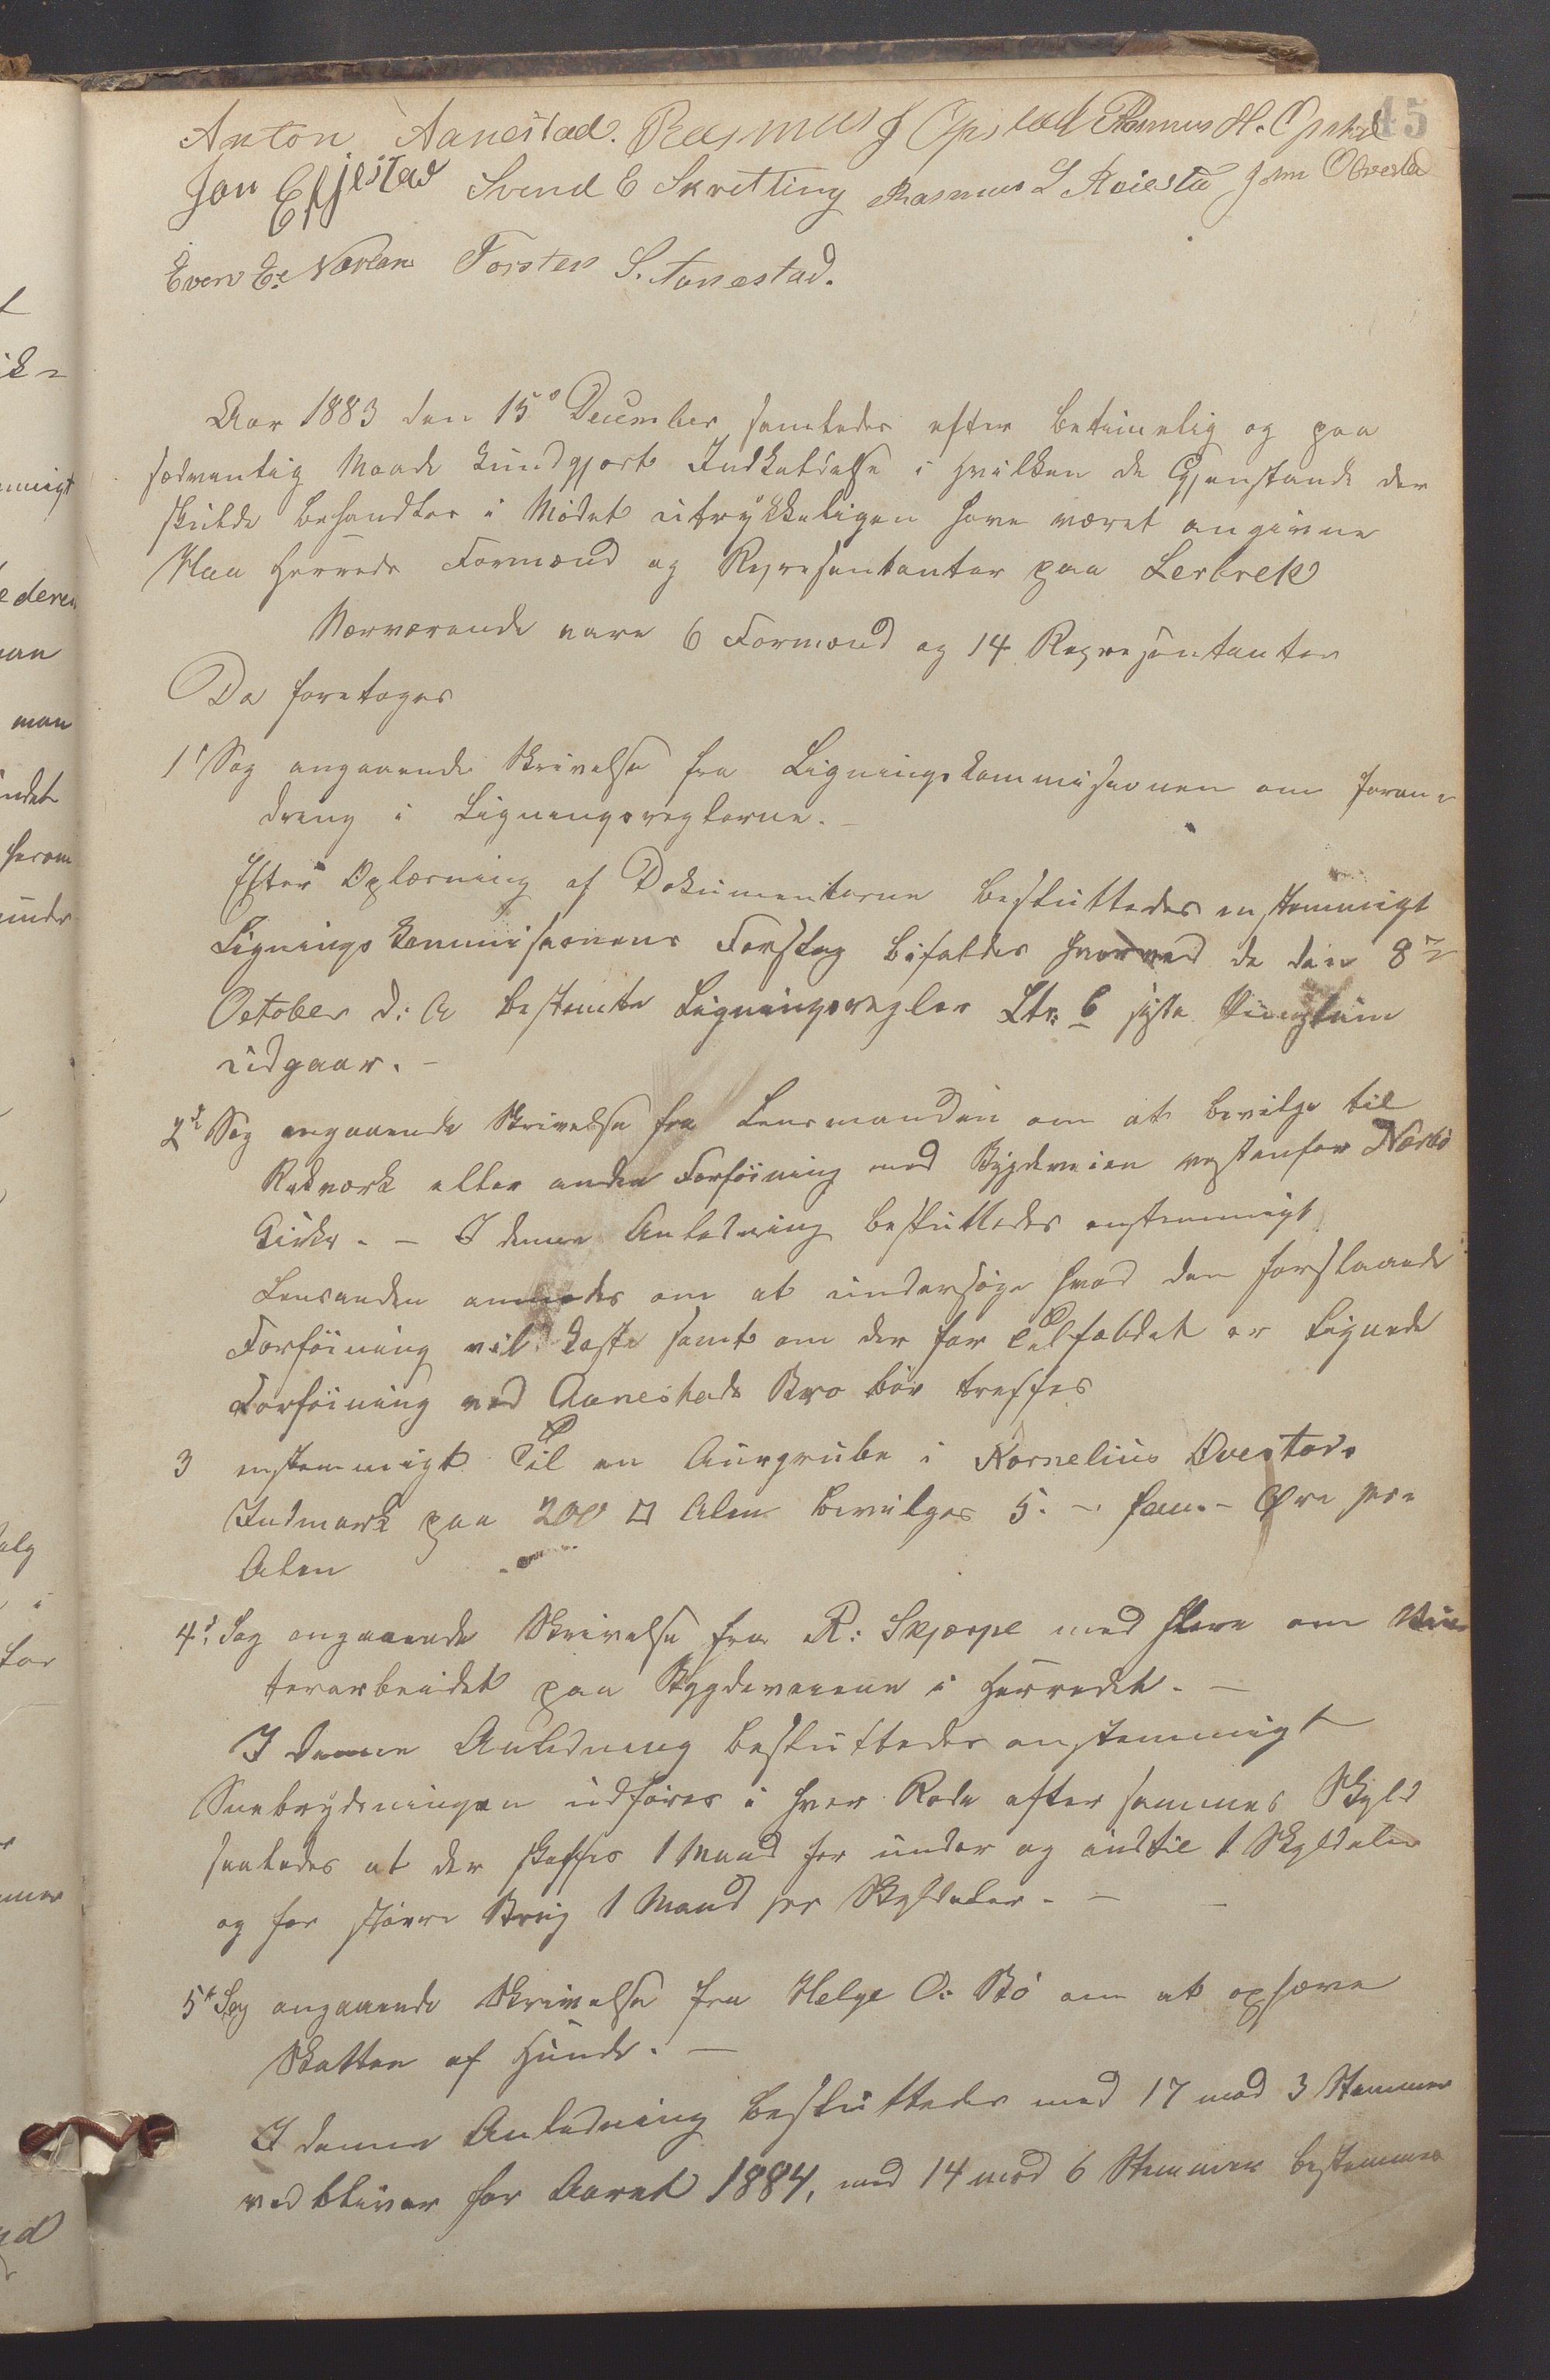 45
Anton Aanestad. Rasmus J Opstad Rasmus H. Opstad
Jon Efjestad Svend E Skretting Rasmus L Reiestad John Obrestad
Even E. Nærland Torsten S. Aanestad.
Aar 1883 den 15de December samledes efter betimelig og paa
sædvanlig Maade kundgjort Indkaldelse i hvilken de Gjenstande der
skulde behandles i Mødet utrykkeligen have været angivne
Haa Herreds Formænd og Repræsentanter paa Lerbrek
Nærværende vare 6 Formænd og 14 Repræsentanter
Da foretoges
1' Sag angaaende Skrivelse fra Ligningskommisionen om Foran=
dring i Ligningsreglerne. -
Efter Oplæsning af Dokumenterne besluttedes enstemmigt
Ligningskommisionens Forslag bifaldes hvorved de den 8de
October d: A bestemte Ligningsregler Ltr: 6 sidste
udgaar. -
2d Sag angaaende Skrivelse fra Lensmanden om at bevilge til
Rekværk eller anden Forføining med Bygdeveien vestenfor Nærbø
Kirke. - I denne Anledning besluttedes enstemmigt
Lensmanden anmodes om at undersøge hvad den foreslaaede
Forføining vil koste samt om der for Tilfældet er lignede
Forføining ved Aanestads Bro bør treffes
3 enstemmigt Til en Aurgrube i Kornelius Ovestads
Indmark paa 200 □ Alen bevilges 5. - fem. - Øre per
Alen
4d. Sag angaaende Skrivelse fra R: Skjærpe med flere om Vin
terarbeidet paa Bygdeveiene i Herredet. -
I denne Anledning besluttedes enstemmigt
Snebrydningen udføres i hver Rode efter sammes Skyld
saaledes at der skaffes 1 Mand for under og indtil 1 Skyldaler
og for større Brug 1 Mand per Skyldaler. -
5t Sag angaaende Skrivelse fra Helge O: Bø om at ophæve
Skatten af Hunde. -
I denne Anledning besluttedes med 17 mod 3 Stemmer
vedbliver for Aaret 1884, med 14 mod 6 Stemmer bestemmes